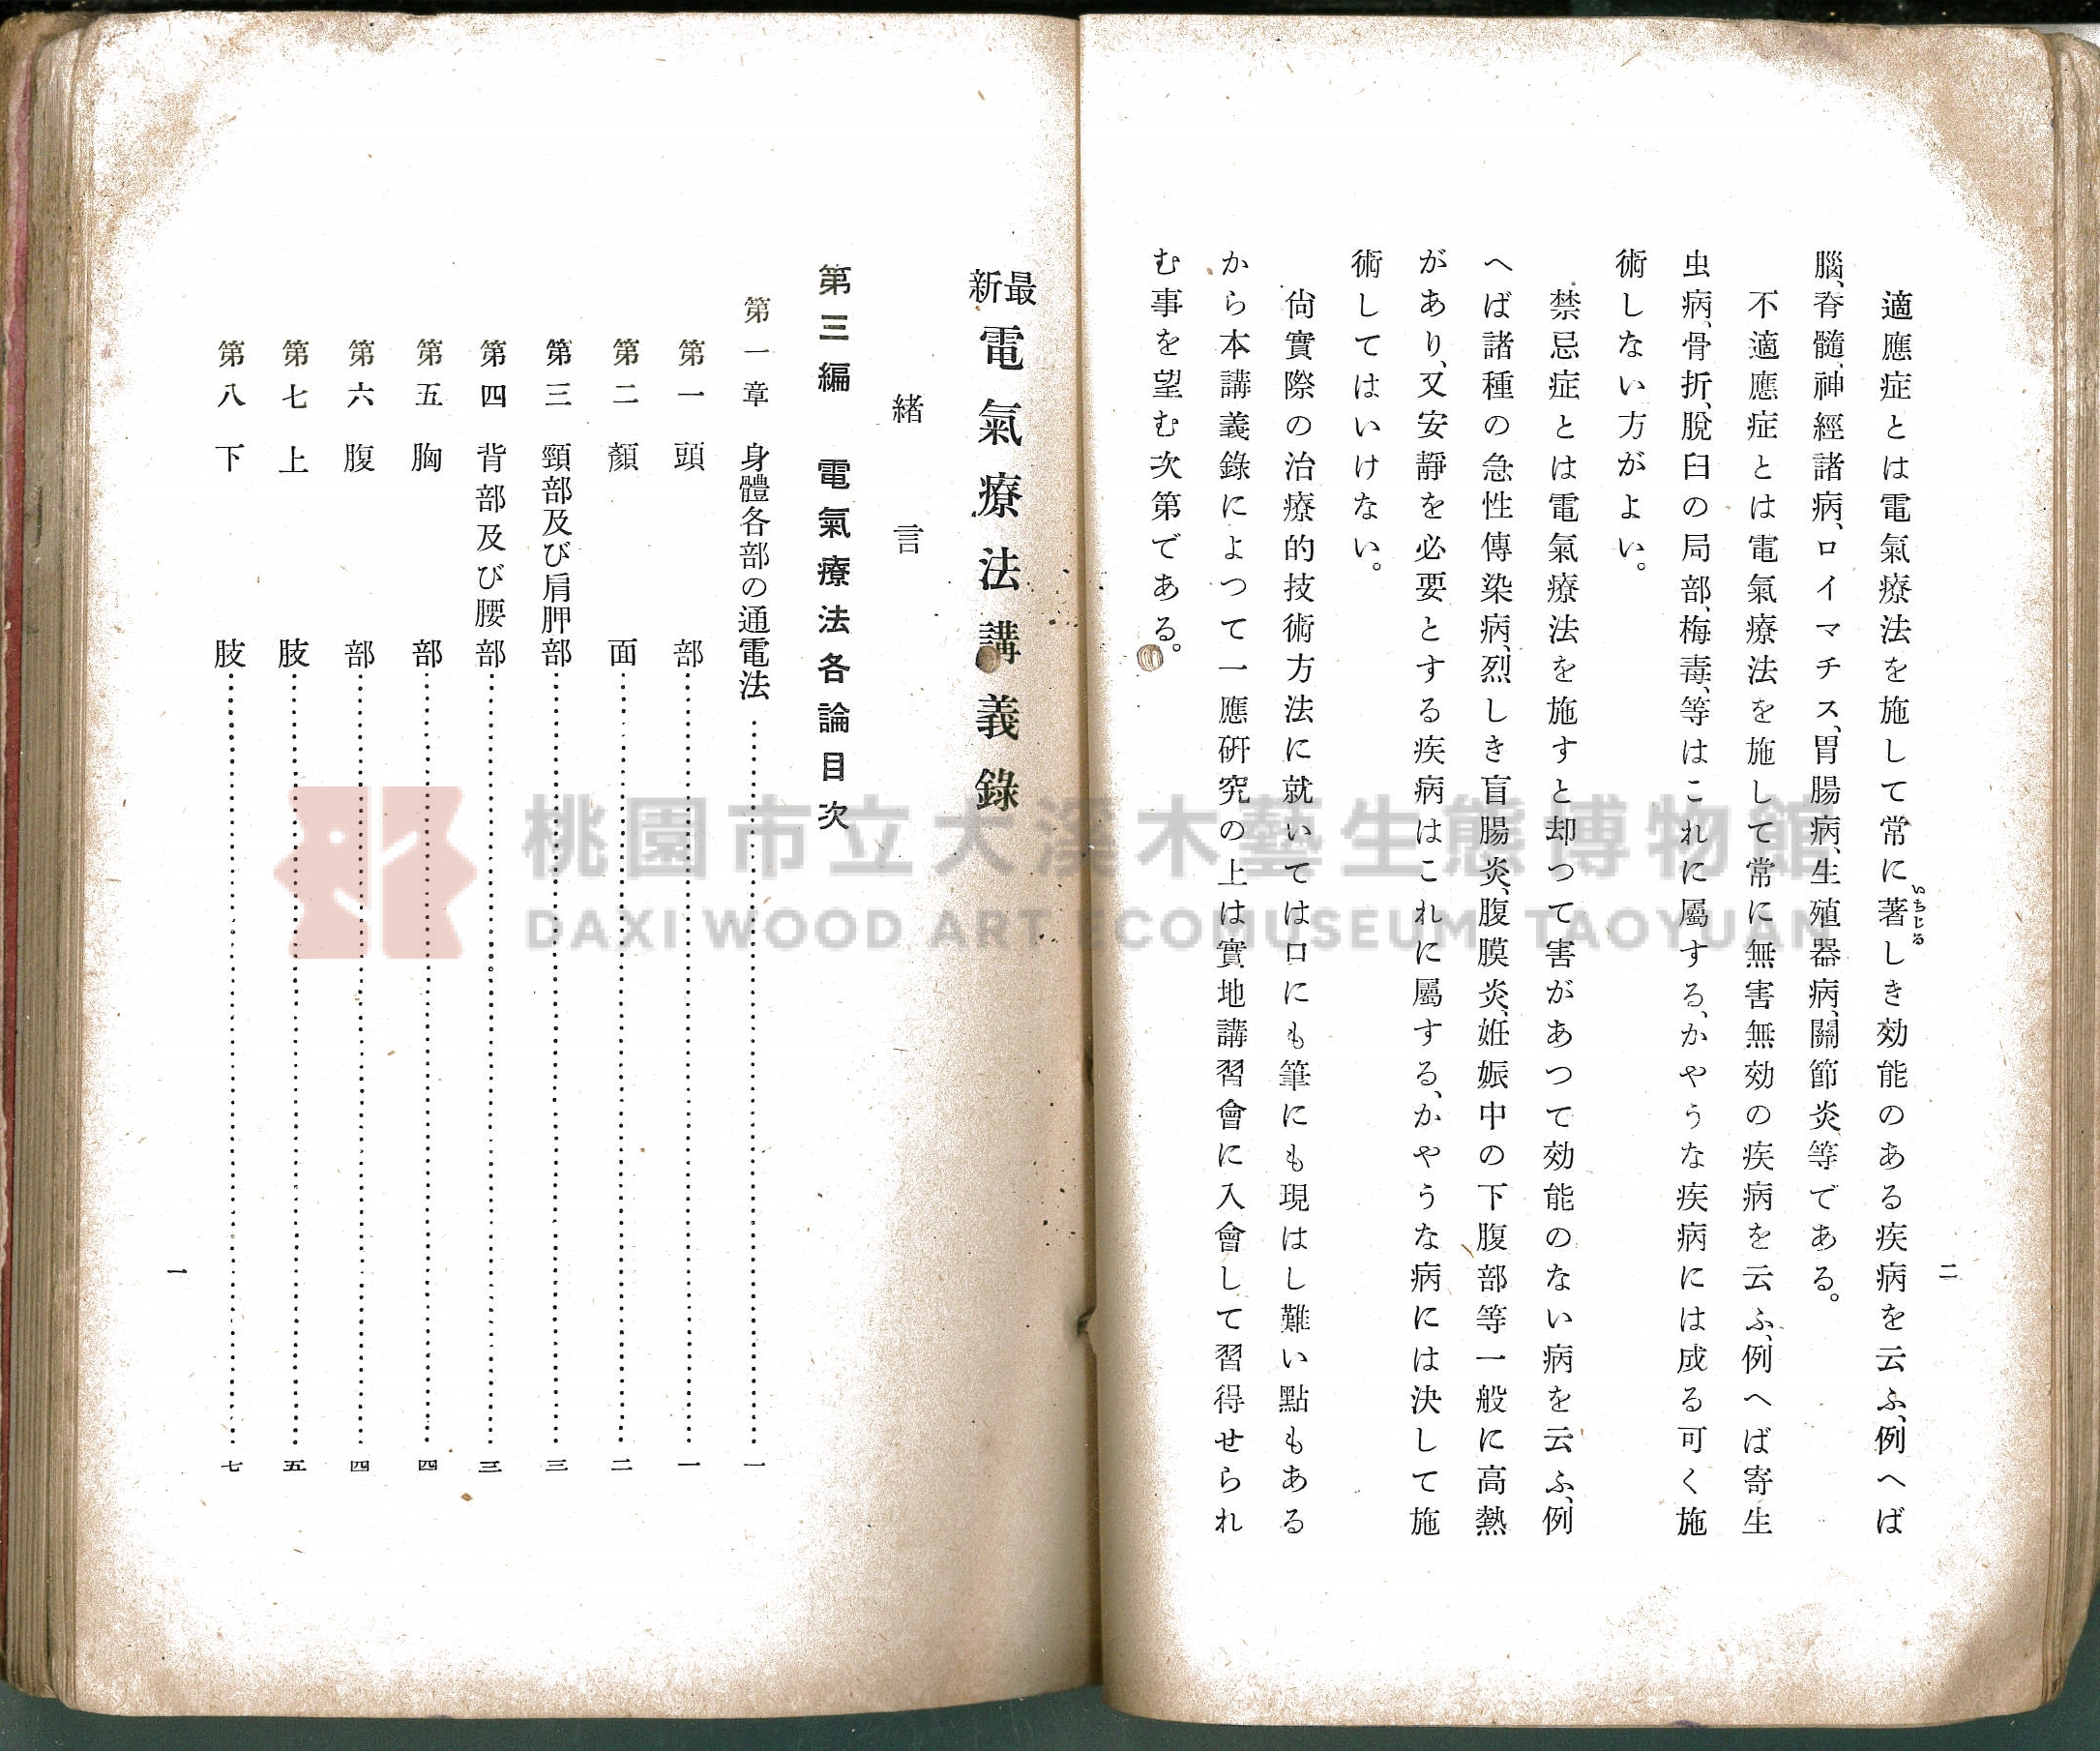 二
適應症とは電氣療法を施して常に著しき効能のある疾病を云ふ、例へば
いちじる
腦、脊髓、神經諸病、ロイマチス、胃腸病、生殖器病、關節炎、等である。
不適應症とは電氣療法を施して常に無害無効の疾病を云ふ、例へば寄生
虫病、骨折、脫臼の局部、梅毒、等はこれに屬する、かやうな疾病には成る可く施
術しない方がよい。
禁忌症とは電氣療法を施すと却つて害があつて効能のない病を云ふ、例
へば諸種の急性傳染病、烈しき盲腸炎、腹膜炎、姙娠中の下腹部等一般に高熱
があり、又安靜を必要とする疾病はこれに屬する、かやうな病には決して施
術してはいけない。
尙實際の治療的技術方法に就いては口にも筆にも現はし難い點もある
から本講義錄によつて一應硏究の上は實地講習會に入會して習得せられ
む事を望む次第である。
最新 電氣療法講義錄
緒言
第三編 電氣療法各論目次
第一章 身體各部の通電法……一
第一 頭部……一
第二 顏面……二
第三 頸部及び肩胛部……三
第四 背部及び腰部……三
第五 胸部……四
第六 腹部……四
第七 上肢……五
第八 下肢……七
一
桃園市立大溪木藝生態博物館
DAXI WOOD ART ECOMUSEUM, TAOYUAN